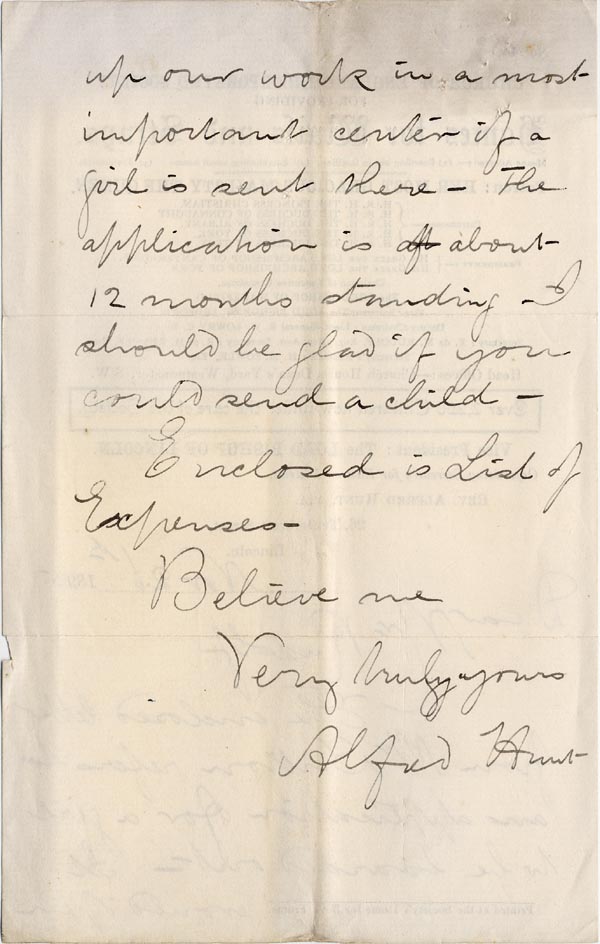 up our work in a most
important center if a
girl is sent there – The
application is about
12 months standing – I
should be glad if you
could send a child –
Enclosed is List of
Expenses –
Believe me
Very truly yours
Alfred Hunt